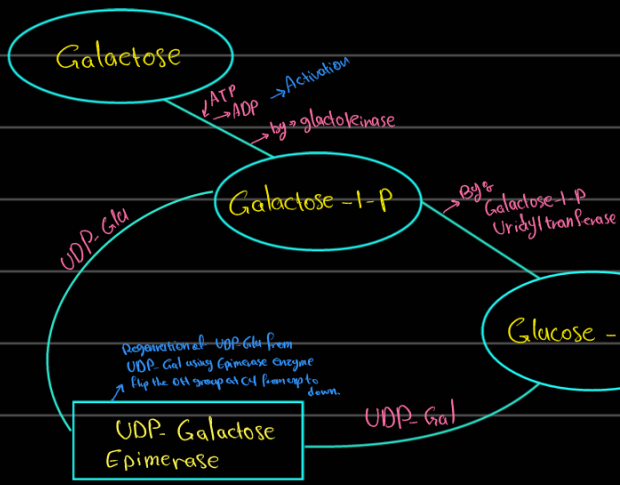 Galactose
ATP
→ADP
→Activation
→by→glactokinase
Galactose-1-P
→By:
Galactose-1-P
Uridyltranferase
UDP-Glu
Glucose -
Regenrational UDP-Glu from
UDP-Gal using Epimerase enzyme
flip the OH group at C4 from up to
down.
UDP-Gal
UDP-Galactose
Epimerase